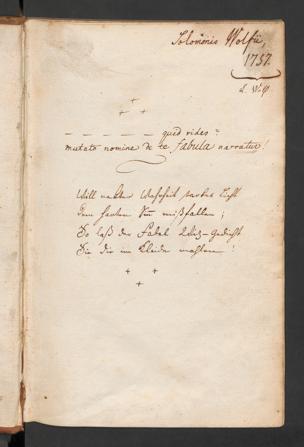 Solomonis Wolfii,
1757.
_ _ _ _ _ _ _ quid rides?
mutato nomine de te fabula narratur!
Will nackter Wahrheit Licht
Dem Sinn mißfallen;
So laß der Fabel Gedicht
Sie dir im Kleide mahlen!